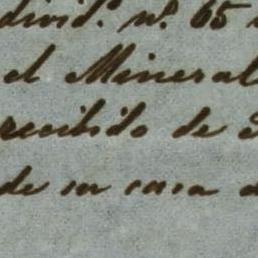 divid.º n.º 65
el Mineral
recibido de
de su casa